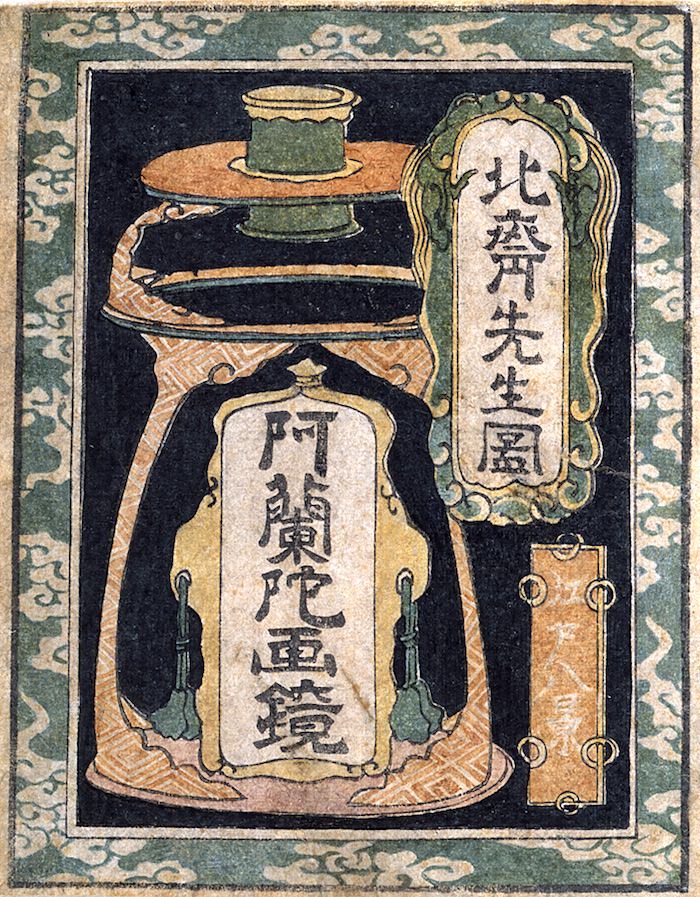 北斎先生圖
阿蘭陀画鏡
江戸八景